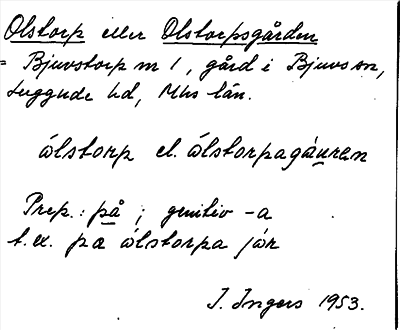 Olstorp eller Olstorpsgården
= Bjuvstorp m 1, gård i Bjuvs sn,
Luggude hd, Mhs län.
ólstorp el. ólstorpagáuren
Prep.: på; genitiv -a
t.ex. pa ólstorpa jór
I. Ingers 1953.